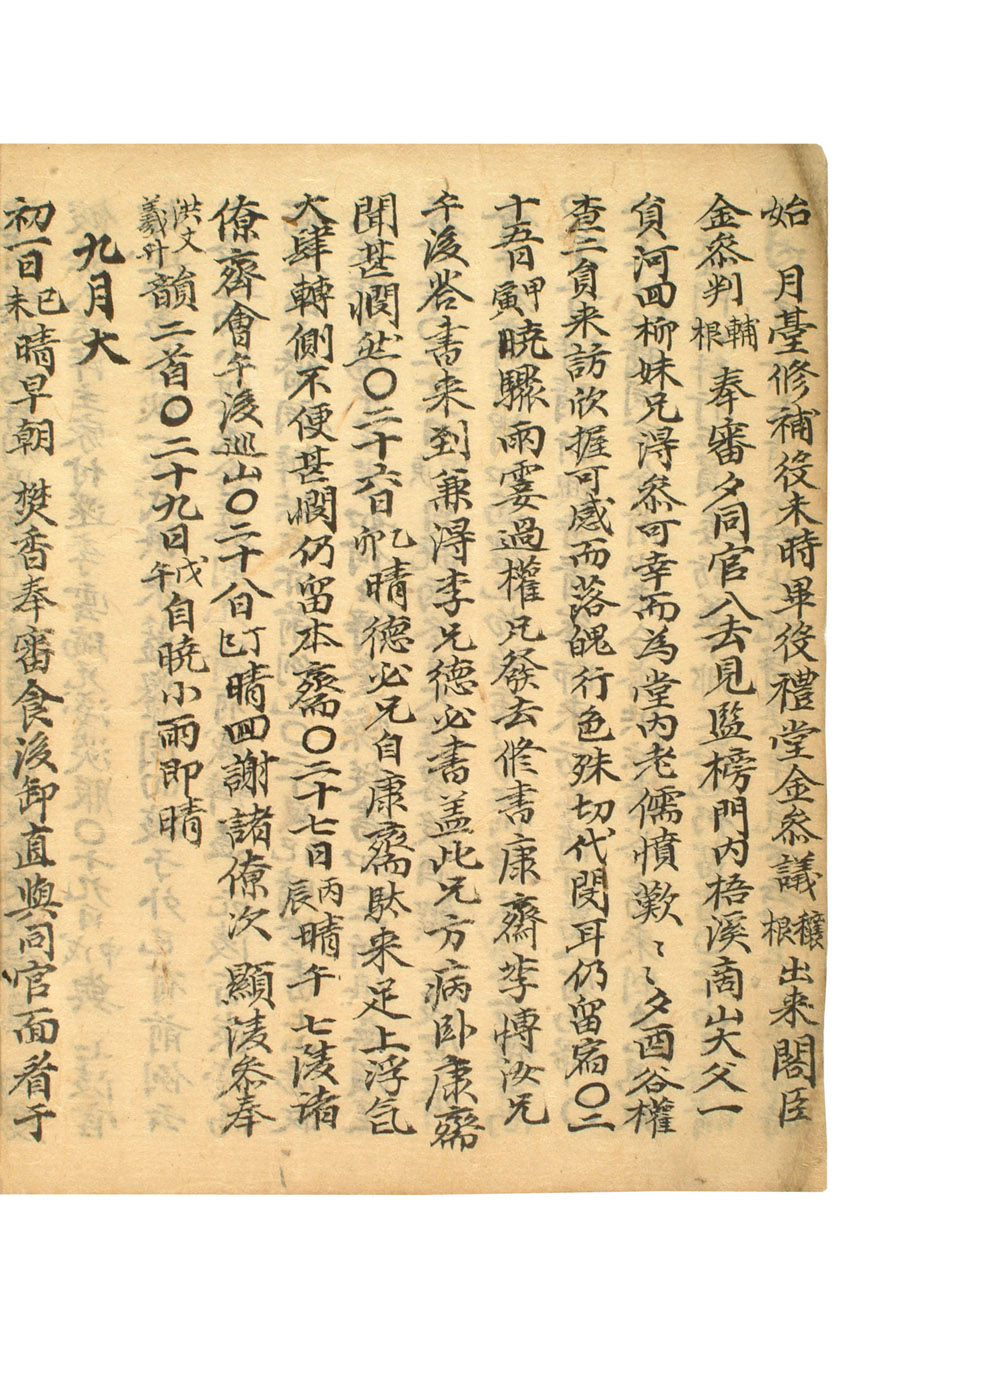 始 月臺修補役未時畢役禮堂金叅議穰根出来閣臣
金叅判輔根 奉審夕同官入去見監榜門內梧溪商山大父一
負河回柳妹兄淂叅可幸而為堂內老儒憤歎〻〻夕酉谷權
查二負来訪欣握可感而落魄行色殊切代閔耳仍留宿〇二
十五日甲寅曉驟雨霎過權兄發去修書康齋李博汝兄
午後答書来到兼淂李兄德必書盖此兄方病卧康齋
聞甚憫然〇二十六日乙卯晴德必兄自康齋駄来足上浮氣
大肆轉側不便甚憫仍留本齋〇二十七日丙辰晴午七陵諸
僚齊會午後巡山〇二十八日丁巳晴回謝諸僚次 顯陵叅奉
洪文羲升韻二首〇二十九日戊午自曉小雨即晴
九月大
初一日己未晴早朝 焚香奉審食後卸直與同官面看于